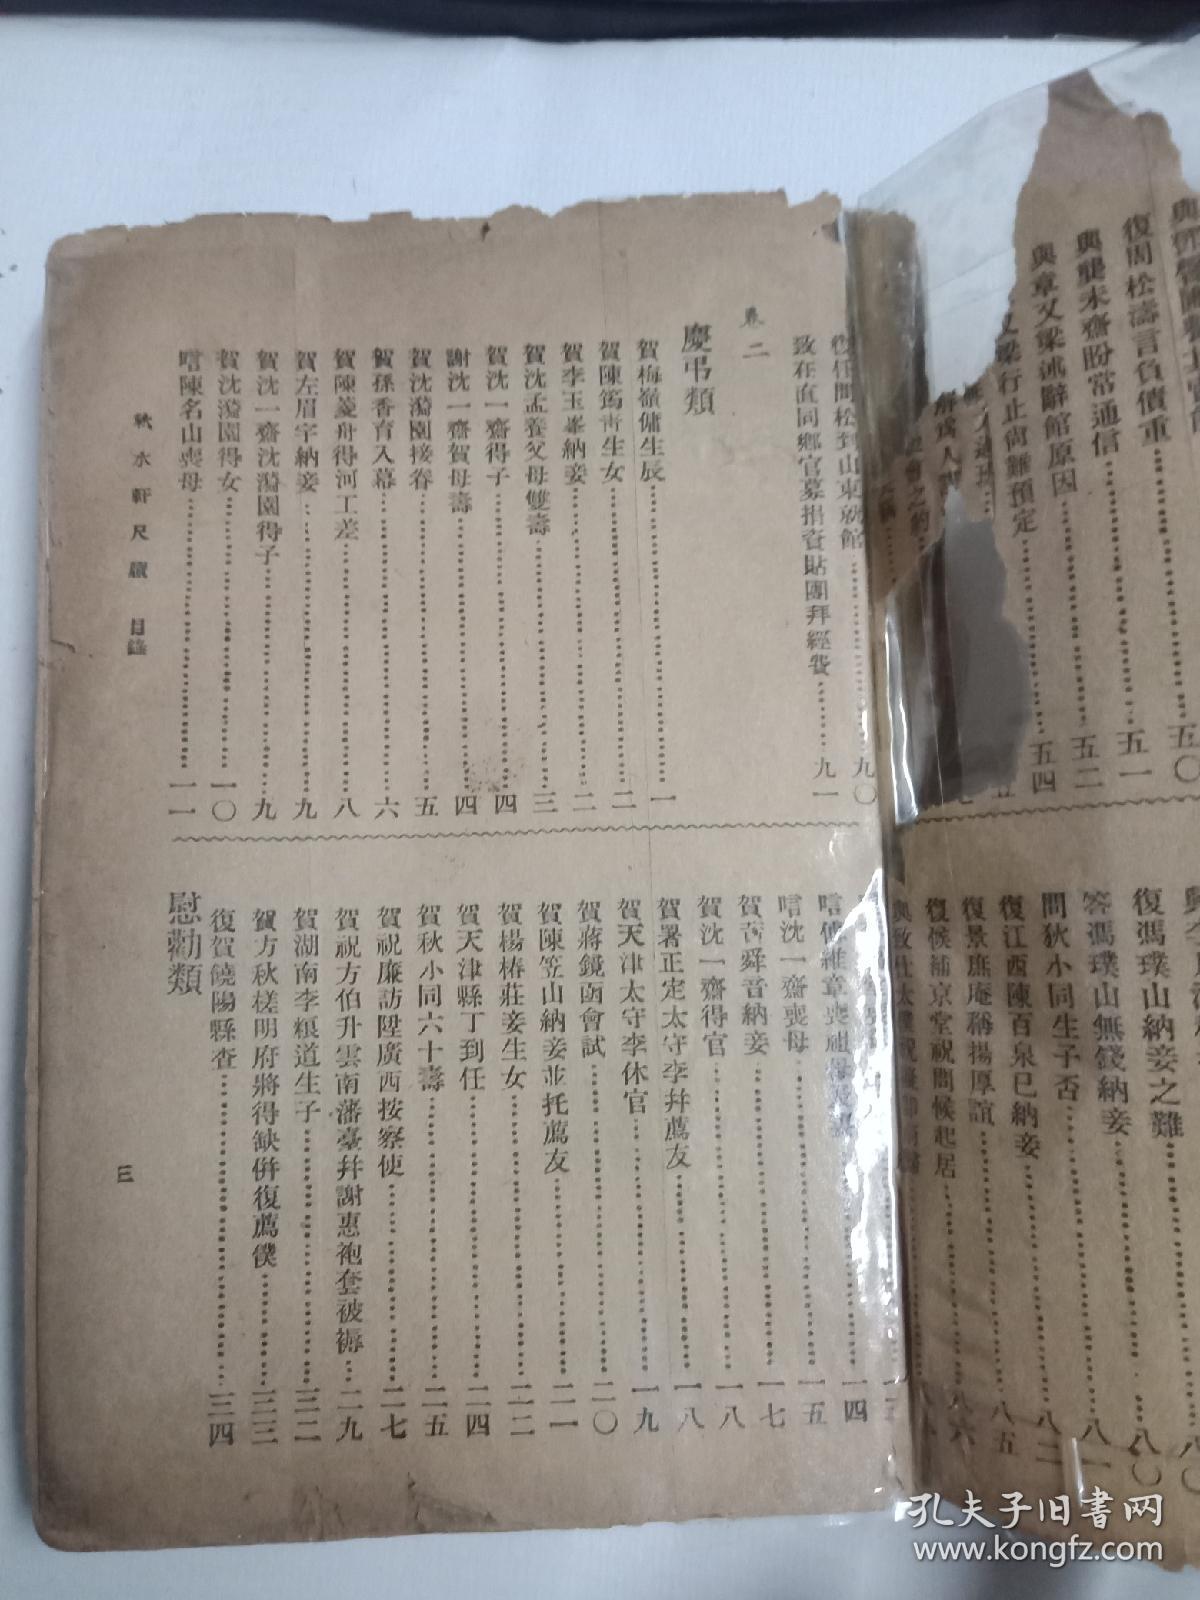 復周松濤言負債重……五一
與龔未齋盼常通信……五二
與章又梁述辭館原因……五四
又梁行止尚難預定
復馮璞山納妾之難……八〇
答馮璞山無錢納妾……八一
問狄小同生子否……八二
復江西陳百泉已納妾……八五
復景庶庵稱揚厚誼……八六
復候補京堂祝問候起居
復任問松到山東就館……九〇
致在直同鄉官募捐資貼團拜經費……九一
卷二
慶弔類
賀梅嶺傭生辰……一
賀陳筠靑生女……二
賀李玉峯納妾……二
賀沈孟養父母雙壽……三
賀沈一齋得子……四
謝沈一齋賀母壽……四
賀沈漪園接眷……五
賀孫香育入幕……六
賀陳菱舟得河工差……八
賀左眉宇納妾……九
賀沈一齋沈漪園得子……九
賀沈漪園得女……一〇
唁陳名山喪母……一一
唁傅維章喪祖母及……一四
唁沈一齋喪母……一五
賀言舜音納妾……一七
賀沈一齋得官……一八
賀署正定太守李幷薦友……一八
賀天津太守李休官……一九
賀蔣鏡函會試……二〇
賀陳笠山納妾並托薦友……二一
賀楊椿莊妾生女……二二
賀天津縣丁到任……二四
賀秋小同六十壽……二五
賀祝廉訪陞廣西按察使……二七
賀祝方伯升雲南藩臺幷謝惠袍套被褥……二九
賀湖南李糧道生子……三二
賀方秋槎明府將得缺併復薦僕……三三
復賀饒陽縣查……三四
慰勸類
秋水軒尺牘 目錄
三
孔夫子旧书网
www.kongfz.com